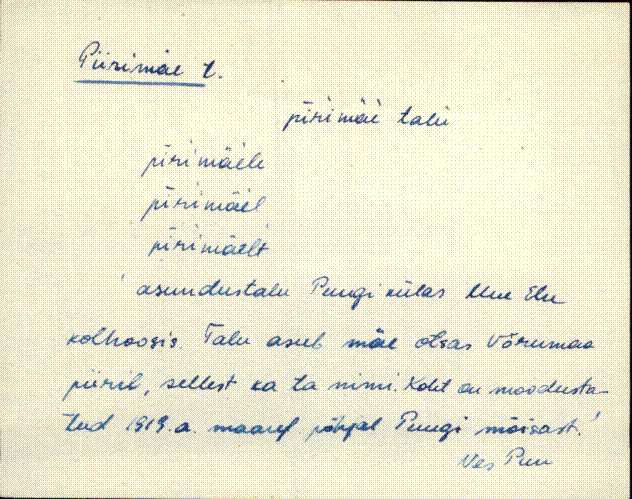 Piirimäe t.
pīrimäe talu
pīrimäele
pīrimäel
pīrimäelt
asundustalu Puugi külas Uue Elu
kolhoosis. Talu asub mäe otsas Võrumaa
piiril, sellest ka ta nimi. Koht on moodusta-
tud 1919.a. maaref põhjal Puugi mõisast.